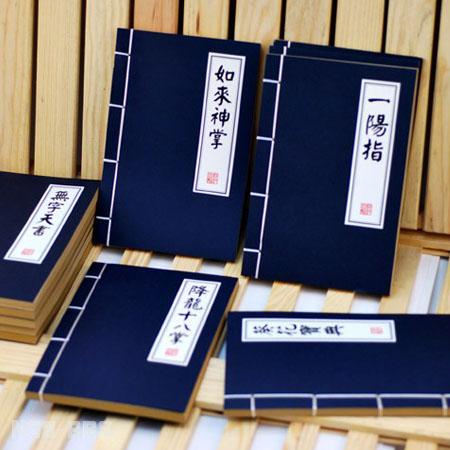 如來神掌
一陽指
無字天書
降龍十八掌
葵花寶典